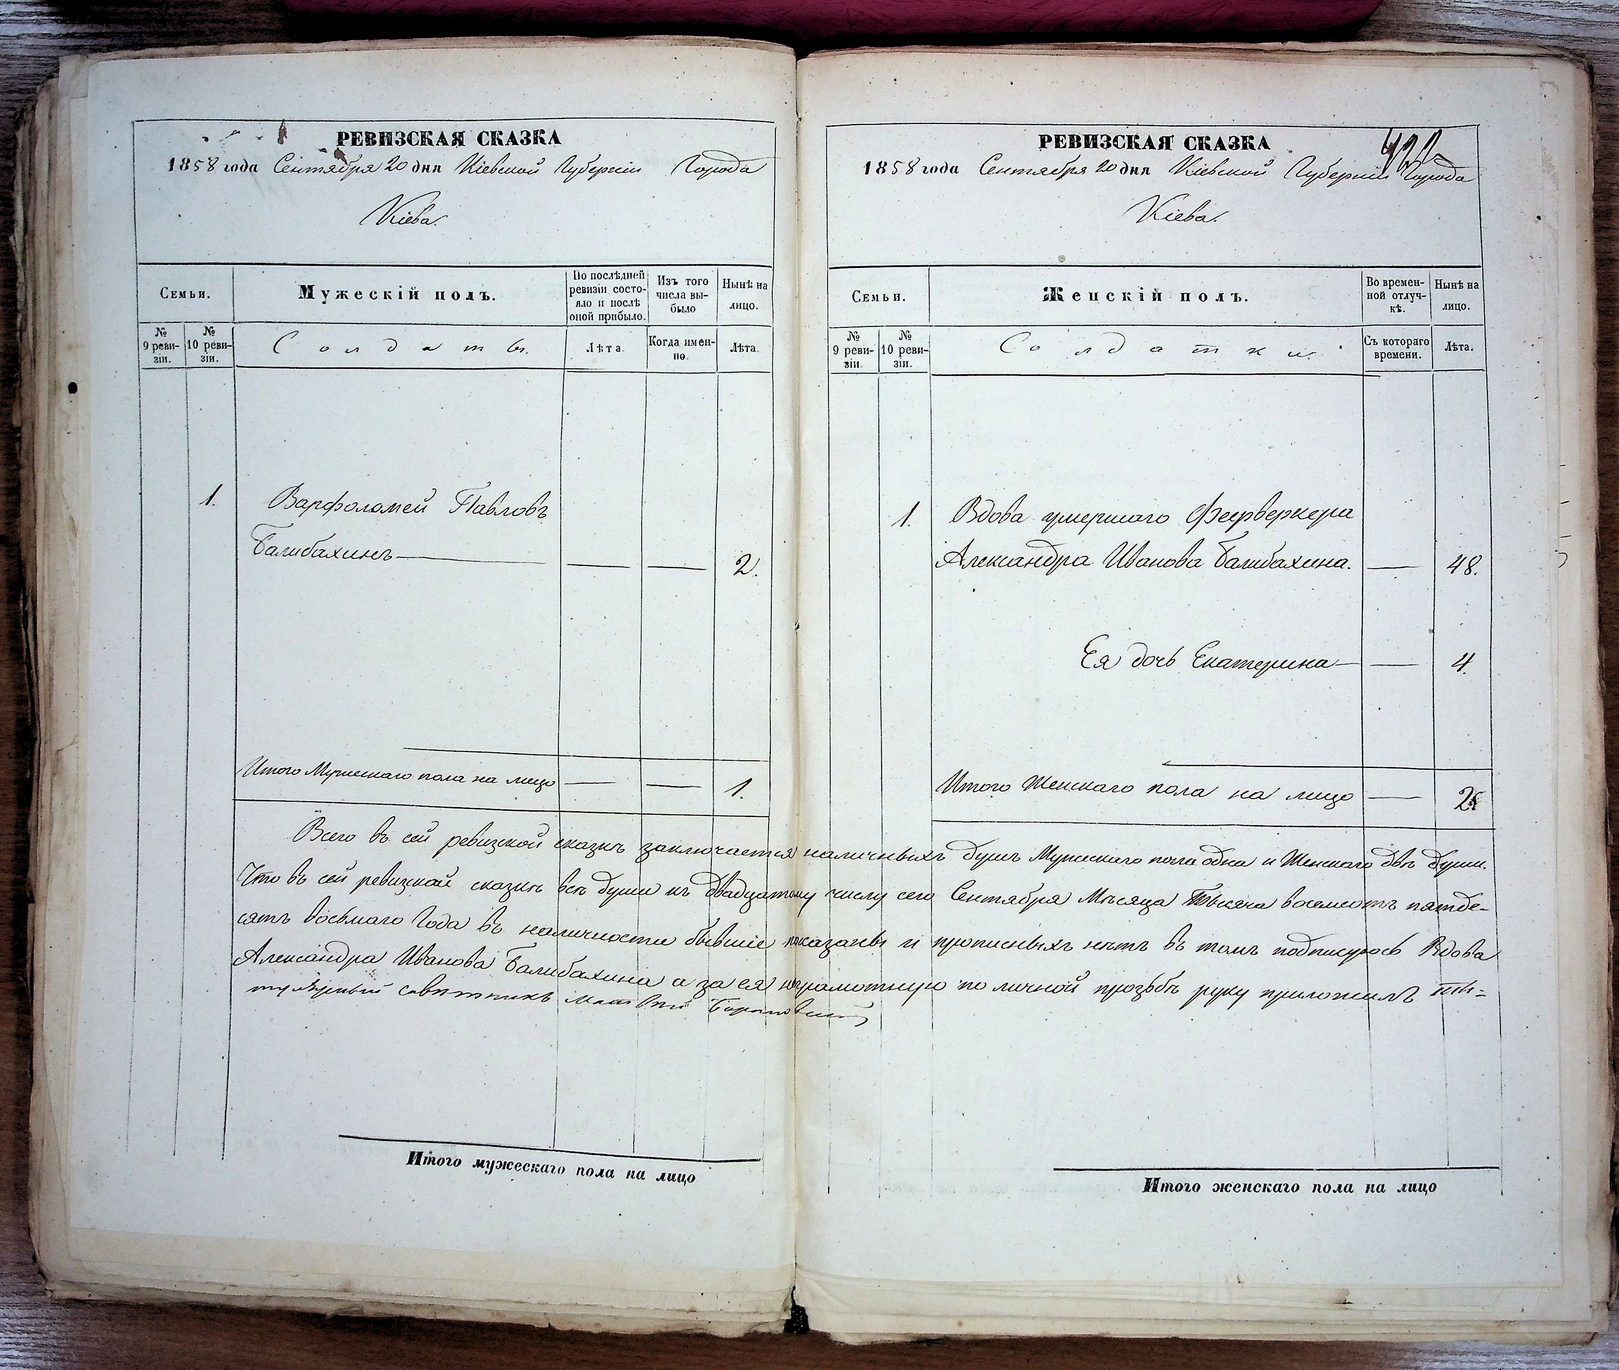 РЕВИЗСКАЯ СКАЗКА
1858 года Сентября 20 дня Кіевской Губерніи Города
Кіева.
Семьи.
Мужескій полъ.
По послѣдней ревизіи состояло и послѣ оной прибыло.
Изъ того числа выбыло
Нынѣ на лицо.
№ 9 ревизіи.
№ 10 ревизіи.
Солдаты.
Лѣта.
Когда именно.
Лѣта.
1. Варфоломей Павловъ
Балабахинъ — — — 2.
Итого Мужескаго пола на лицо — — 1.
РЕВИЗСКАЯ СКАЗКА
1858 года Сентября 20 дня Кіевской Губерніи Города
Кіева.
Семьи.
Женскій полъ.
Во временной отлучкѣ.
Нынѣ на лицо.
№ 9 ревизіи.
№ 10 ревизіи.
Солдатки.
Съ котораго времени.
Лѣта.
1. Вдова умершаго Феерверкера
Александра Иванова Балабахина. — 48.
Ея дочь Екатерина — — 4.
Итого Женскаго пола на лицо — 2
Всего въ сей ревизской сказкѣ заключается наличныхъ душъ Мужескаго пола одна и Женскаго двѣ души.
Что въ сей ревизской сказкѣ всѣ души къ двадцатому числу сего Сентября Мѣсяца Тысяча восемсотъ пятьде-
сятъ восьмаго Года въ наличности бывшіе показаны и прописныхъ нѣтъ въ томъ подписуюсь Вдова
Александра Иванова Балабахина а за ея неграмотную по личной прозьбѣ руку приложилъ ти-
тулярный совѣтникъ
Итого мужескаго пола на лицо
Итого женскаго пола на лицо